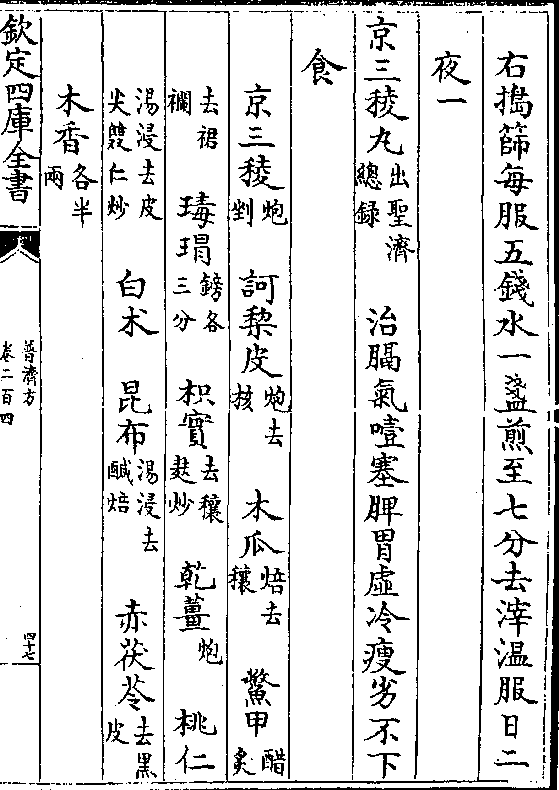 右搗篩每服五錢水一盞煎至七分去滓温服日二
夜一
京三稜丸出聖濟總錄 治膈氣噎塞脾胃虛冷瘦劣不下
食
京三稜炮剉 訶梨皮炮去核 木瓜焙去穰 鱉甲醋炙
去裙襴 瑇瑁鎊各三分 枳實去穰麩炒 乾薑炮 桃仁
湯浸去皮尖雙仁炒 白术 昆布湯浸去鹹焙 赤茯苓去黑皮
木香各半兩
欽定四庫全書
普濟方
卷二百四
四十七